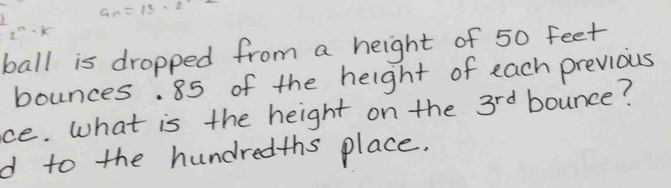 an = 13 · 2
2ⁿ · k
ball is dropped from a height of 50 feet
bounces .85 of the height of each previous
ce. What is the height on the 3rd bounce?
d to the hundredths place.